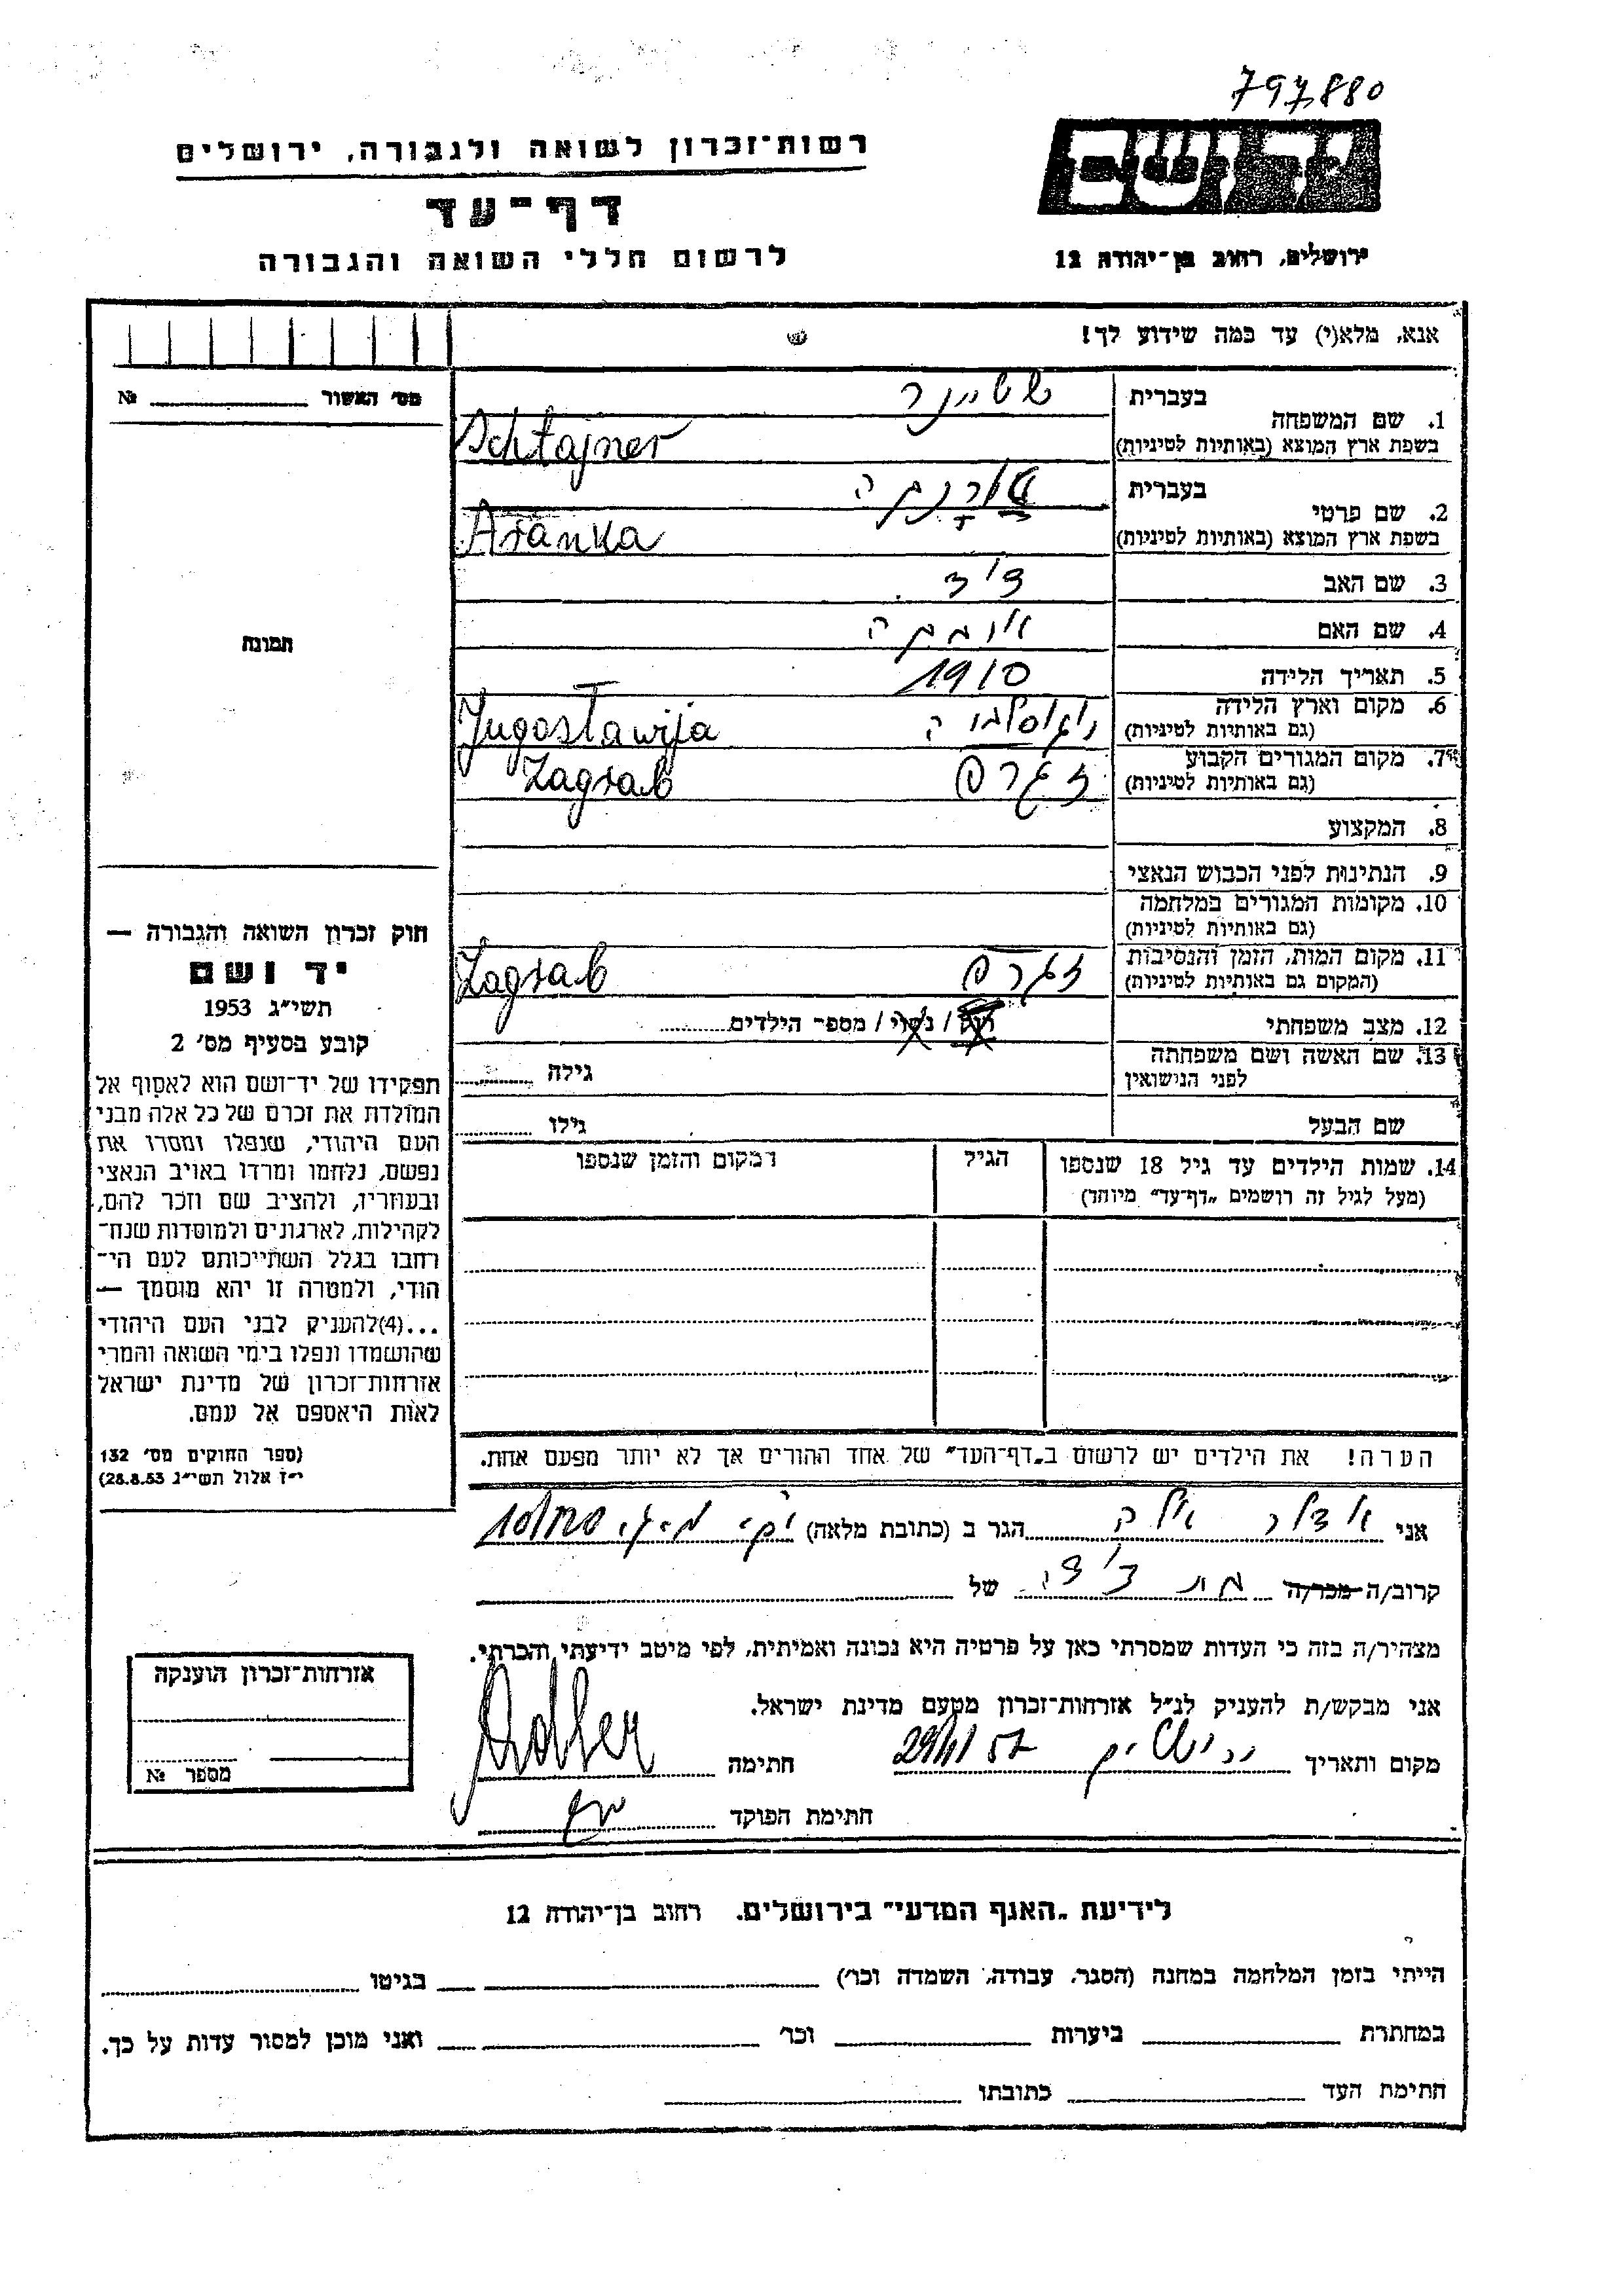 797,880
רשות־זכרון לשואה ולגבורה, ירושלים
ידושם
דף־עד
לרשום חללי השואה והגבורה
ירושלים, רחוב בן־יהודה 12
אנא, מלא(י) עד כמה שידוע לך!
מס' האשור №
בעברית שטיינר
1. שם המשפחה
בשפת ארץ המוצא (באותיות לטיניות) Schtajner
בעברית
2. שם פרטי
בשפת ארץ המוצא (באותיות לטיניות) Aranka
3. שם האב
4. שם האם
תמונה
5. תאריך הלידה 1910
6. מקום וארץ הלידה
(גם באותיות לטיניות) יוגוסלביה Jugoslawija
7. מקום המגורים הקבוע
(גם באותיות לטיניות) זגרב Zagrab
8. המקצוע
9. הנתינות לפני הכבוש הנאצי
10. מקומות המגורים במלחמה
(גם באותיות לטיניות)
11. מקום המות, הזמן והנסיבות
(המקום גם באותיות לטיניות) זגרב Zagrab
12. מצב משפחתי רווק / נשוי / מספר הילדים
13. שם האשה ושם משפחתה
לפני הנישואין גילה
שם הבעל גילו
14. שמות הילדים עד גיל 18 שנספו הגיל המקום והזמן שנספו
(מעל לגיל זה רושמים "דף־עד" מיוחד)
חוק זכרון השואה והגבורה —
יד ושם
תשי"ג 1953
קובע בסעיף מס' 2
תפקידו של יד־ושם הוא לאסוף אל
המולדת את זכרם של כל אלה מבני
העם היהודי, שנפלו ומסרו את
נפשם, נלחמו ומרדו באויב הנאצי
ובעוזריו, ולהציב שם וזכר להם,
לקהילות, לארגונים ולמוסדות שנח־
רבו בגלל השתייכותם לעם הי־
הודי, ולמטרה זו יהא מוסמך —
...(4)להעניק לבני העם היהודי
שהושמדו ונפלו בימי השואה והמרי
אזרחות־זכרון של מדינת ישראל
לאות היאספם אל עמם.
(ספר החוקים מס' 132
י"ז אלול תשי"ג 28.8.53)
הערה! את הילדים יש לרשום ב"דף־העד" של אחד ההורים אך לא יותר מפעם אחת.
אני אדלר הגר ב (כתובת מלאה)
קרוב/ה מכר/ה של
מצהיר/ה בזה כי העדות שמסרתי כאן על פרטיה היא נכונה ואמיתית, לפי מיטב ידיעתי והכרתי.
אני מבקש/ת להעניק לנ"ל אזרחות־זכרון מטעם מדינת ישראל.
מקום ותאריך ירושלים חתימה Adler
חתימת הפוקד
אזרחות־זכרון הוענקה
מספר №
לידיעת "האגף המדעי" בירושלים. רחוב בן־יהודה 12
הייתי בזמן המלחמה במחנה (הסגר, עבודה, השמדה וכו') בגיטו
במחתרת ביערות וכו' ואני מוכן למסור עדות על כך.
חתימת העד כתובתו